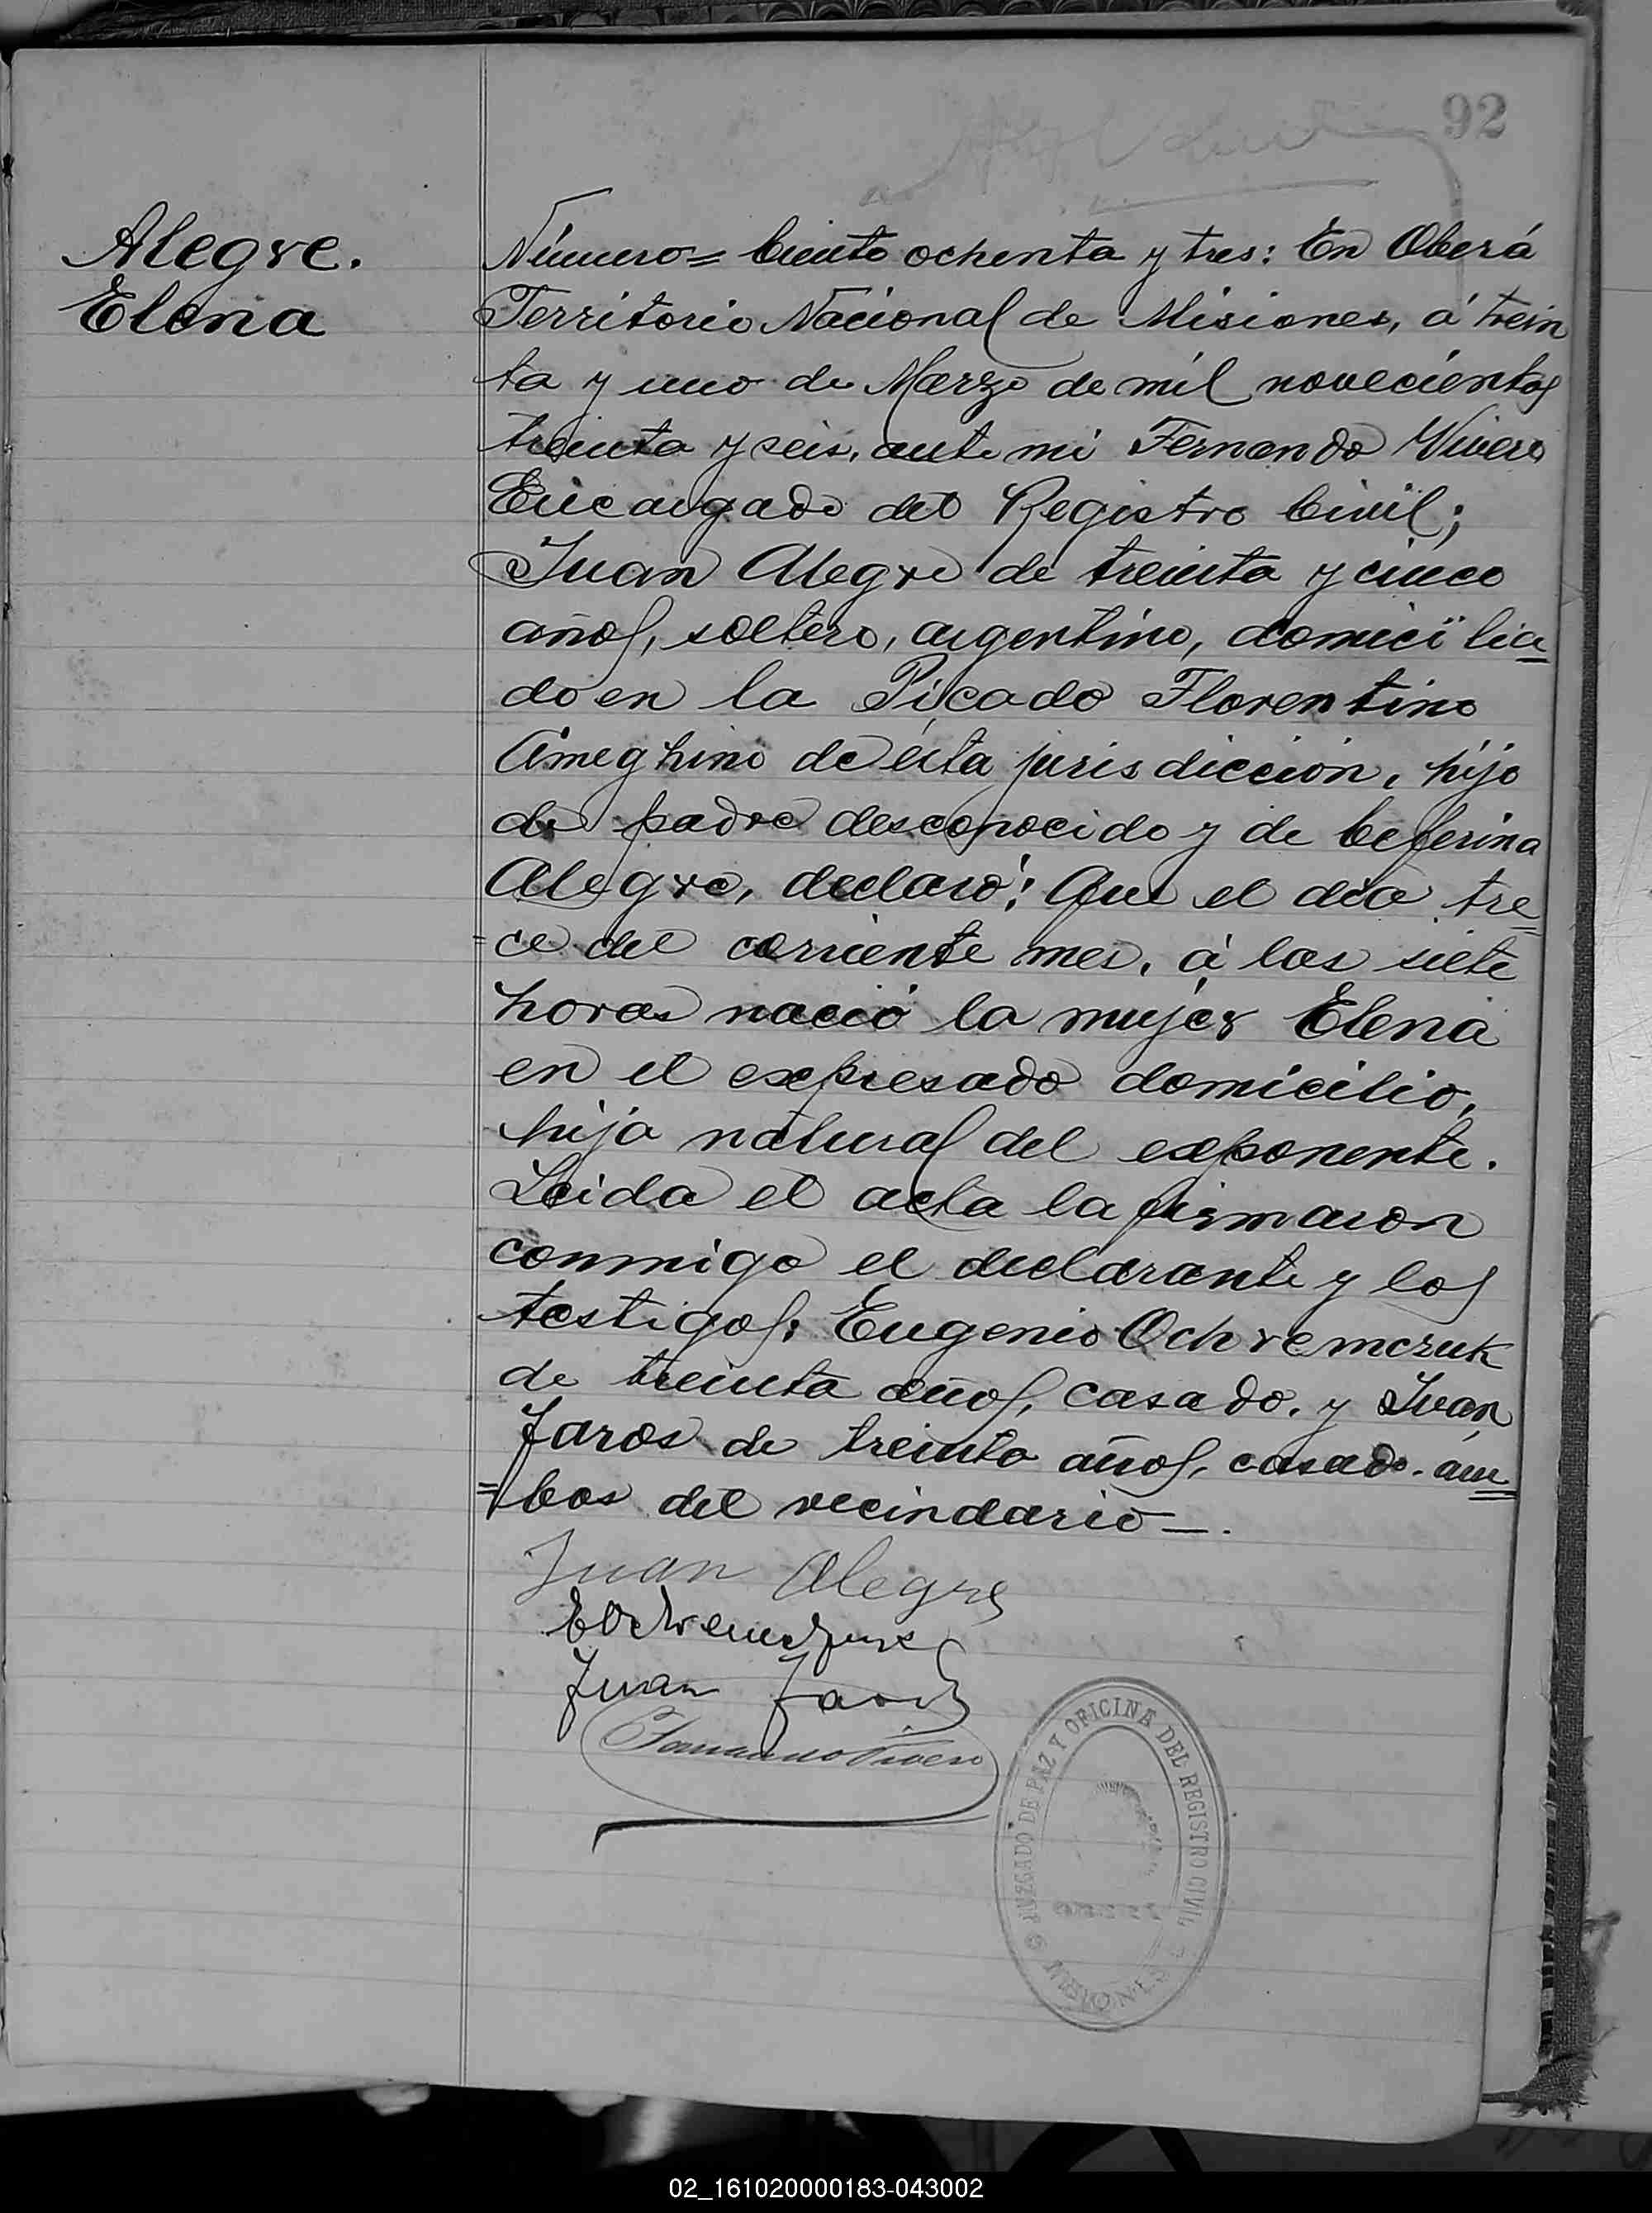 92
Alegre.
Elena
Número = Ciento ochenta y tres: En Oberá
Territorio Nacional de Misiones, á trein
ta y uno de Marzo de mil novecientos
treinta y seis, ante mi Fernando Vivero
Encargado del Registro Civil;
Juan Alegre de treinta y cinco
años, soltero, argentino, domicilia=
do en la Picado Florentino
Ameghino de ésta jurisdicción, hijo
de padre desconocido y de Ceferina
Alegre, declaró: Que el día tre=
=ce del corriente mes, á las siete
horas nació la mujer Elena
en el expresado domicilio,
hija natural del exponente.
Leida el acta la firmaron
conmigo el declarante y los
testigos: Eugenio Ochremczuk
de treinta años, casado, y Juan
Jaros de treinta años, casado. ám=
=bos del vecindario—.
Juan Alegre
EOchremczuk
Juan Jaros
Fernando Vivero
JUZGADO DE PAZ Y OFICINA DEL REGISTRO CIVIL
MISIONES
02_161020000183-043002